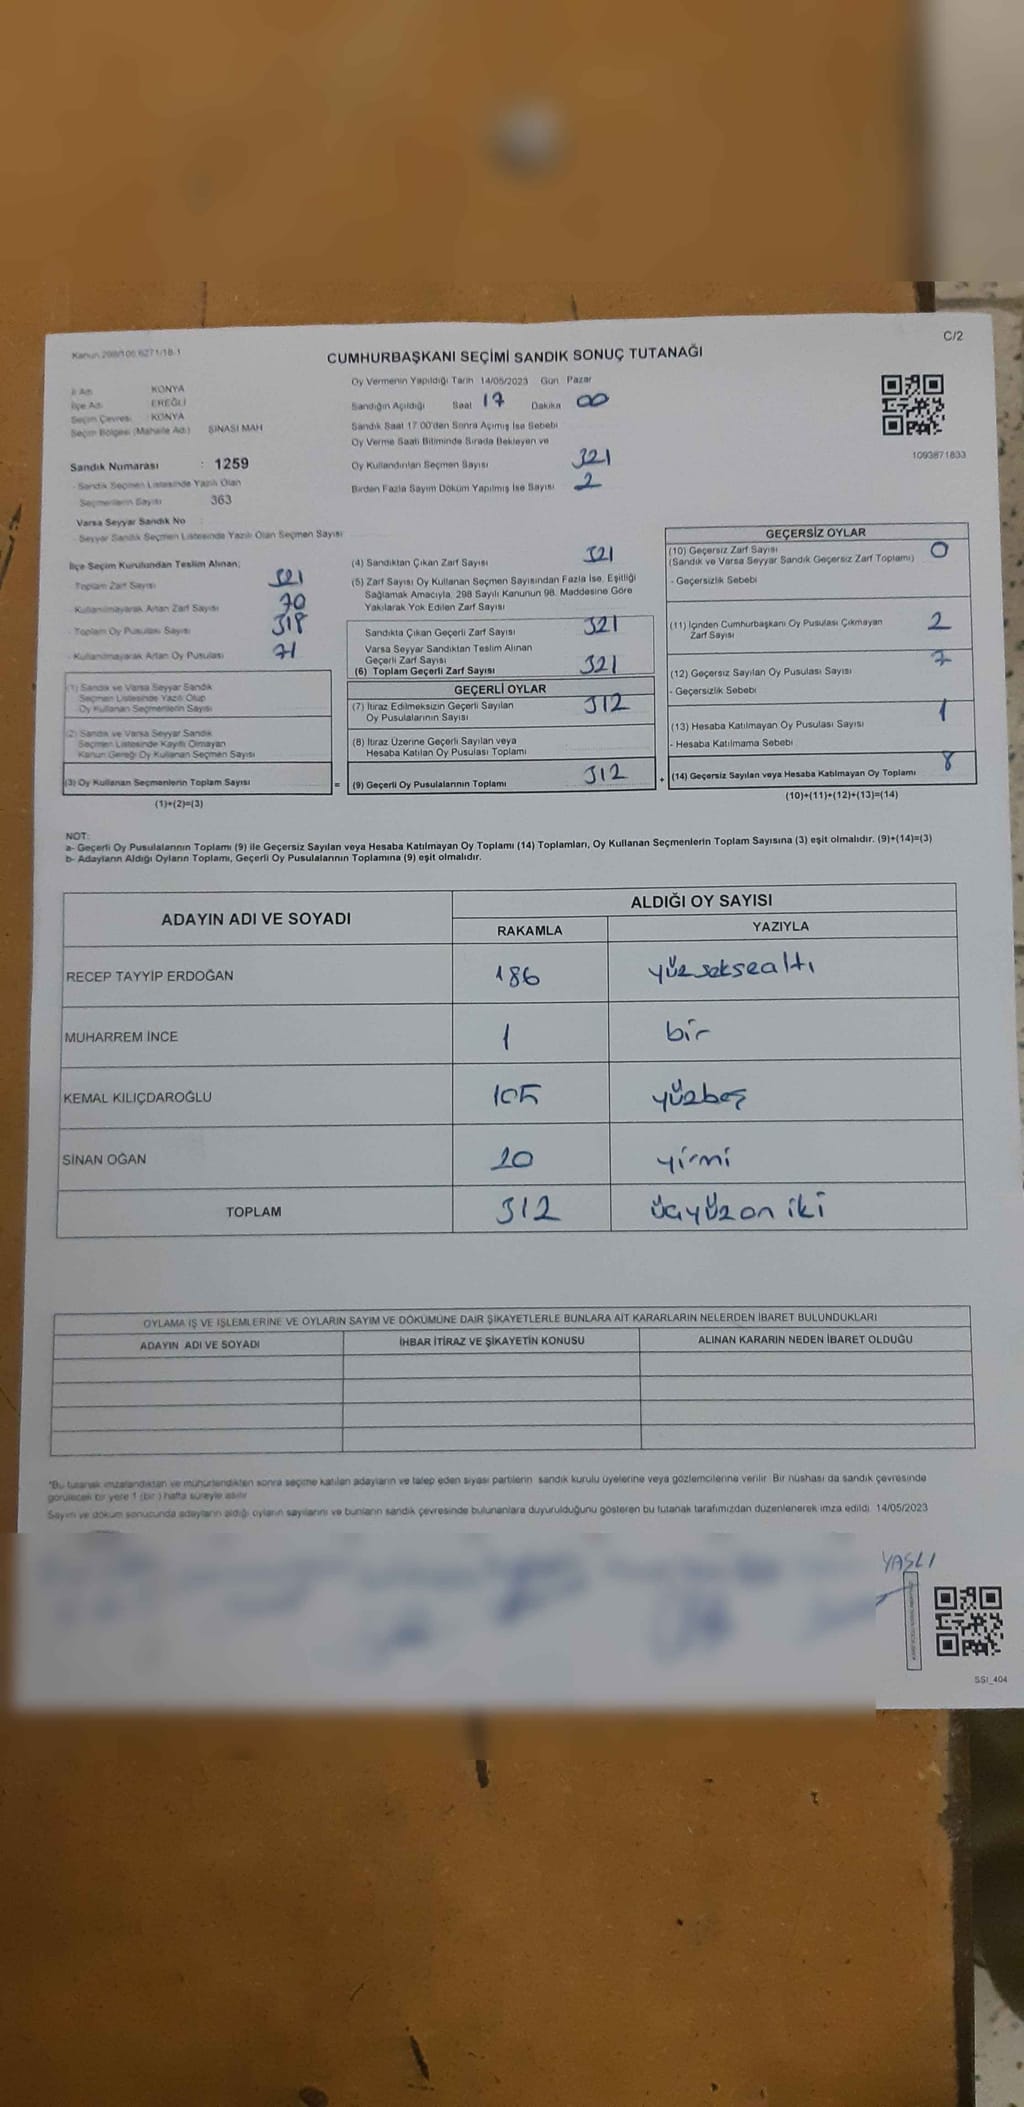 C/2
Kanun 298/106 6271/18-1
CUMHURBAŞKANI SEÇİMİ SANDIK SONUÇ TUTANAĞI
İl Adı KONYA
İlçe Adı EREĞLİ
Seçim Çevresi KONYA
Seçim Bölgesi (Mahalle Adı) ŞİNASİ MAH
Sandık Numarası : 1259
- Sandık Seçmen Listesinde Yazılı Olan
Seçmenlerin Sayısı 363
Varsa Seyyar Sandık No
- Seyyar Sandık Seçmen Listesinde Yazılı Olan Seçmen Sayısı
Oy Vermenin Yapıldığı Tarih 14/05/2023 Gün Pazar
Sandığın Açıldığı Saat 17 Dakika 00
Sandık Saat 17:00'den Sonra Açmış İse Sebebi
Oy Verme Saati Bitiminde Sırada Bekleyen ve
Oy Kullandırılan Seçmen Sayısı 321
Birden Fazla Sayım Döküm Yapılmış İse Sayısı 2
1093871833
İlçe Seçim Kurulundan Teslim Alınan;
- Toplam Zarf Sayısı
- Kullanılmayarak Artan Zarf Sayısı 70
- Toplam Oy Pusulası Sayısı 318
- Kullanılmayarak Artan Oy Pusulası 71
(1) Sandık ve Varsa Seyyar Sandık
Seçmen Listesinde Yazılı Olup
Oy Kullanan Seçmenlerin Sayısı
(2) Sandık ve Varsa Seyyar Sandık
Seçmen Listesinde Kayıtlı Olmayan
Kanun Gereği Oy Kullanan Seçmen Sayısı
(3) Oy Kullanan Seçmenlerin Toplam Sayısı =
(1)+(2)=(3)
(4) Sandıktan Çıkan Zarf Sayısı 321
(5) Zarf Sayısı Oy Kullanan Seçmen Sayısından Fazla İse, Eşitliği
Sağlamak Amacıyla, 298 Sayılı Kanunun 98. Maddesine Göre
Yakılarak Yok Edilen Zarf Sayısı
Sandıkta Çıkan Geçerli Zarf Sayısı 321
Varsa Seyyar Sandıktan Teslim Alınan
Geçerli Zarf Sayısı
(6) Toplam Geçerli Zarf Sayısı 321
GEÇERLİ OYLAR
(7) İtiraz Edilmeksizin Geçerli Sayılan
Oy Pusulalarının Sayısı 312
(8) İtiraz Üzerine Geçerli Sayılan veya
Hesaba Katılan Oy Pusulası Toplamı
(9) Geçerli Oy Pusulalarının Toplamı 312 +
GEÇERSİZ OYLAR
(10) Geçersiz Zarf Sayısı 0
(Sandık ve Varsa Seyyar Sandık Geçersiz Zarf Toplamı)
- Geçersizlik Sebebi
(11) İçinden Cumhurbaşkanı Oy Pusulası Çıkmayan
Zarf Sayısı 2
(12) Geçersiz Sayılan Oy Pusulası Sayısı 7
- Geçersizlik Sebebi
(13) Hesaba Katılmayan Oy Pusulası Sayısı 1
- Hesaba Katılmama Sebebi
(14) Geçersiz Sayılan veya Hesaba Katılmayan Oy Toplamı 8
(10)+(11)+(12)+(13)=(14)
NOT:
a- Geçerli Oy Pusulalarının Toplamı (9) ile Geçersiz Sayılan veya Hesaba Katılmayan Oy Toplamı (14) Toplamları, Oy Kullanan Seçmenlerin Toplam Sayısına (3) eşit olmalıdır. (9)+(14)=(3)
b- Adayların Aldığı Oyların Toplamı, Geçerli Oy Pusulalarının Toplamına (9) eşit olmalıdır.
ADAYIN ADI VE SOYADI
ALDIĞI OY SAYISI
RAKAMLA YAZIYLA
RECEP TAYYİP ERDOĞAN 186 yüzseksealtı
MUHARREM İNCE 1 bir
KEMAL KILIÇDAROĞLU 105 yüzbeş
SİNAN OĞAN 20 yirmi
TOPLAM 312 üçyüzoniki
OYLAMA İŞ VE İŞLEMLERİNE VE OYLARIN SAYIM VE DÖKÜMÜNE DAİR ŞİKAYETLERLE BUNLARA AİT KARARLARIN NELERDEN İBARET BULUNDUKLARI
ADAYIN ADI VE SOYADI İHBAR İTİRAZ VE ŞİKAYETİN KONUSU ALINAN KARARIN NEDEN İBARET OLDUĞU
*Bu tutanak imzalandıktan ve mühürlendikten sonra seçime katılan adayların ve talep eden siyasi partilerin sandık kurulu üyelerine veya gözlemcilerine verilir. Bir nüshası da sandık çevresinde
görülecek bir yere 1 (bir) hafta süreyle asılır
Sayım ve döküm sonucunda adayların aldığı oyların sayılarını ve bunların sandık çevresinde bulunanlara duyurulduğunu gösteren bu tutanak tarafımızdan düzenlenerek imza edildi. 14/05/2023
YASLI
SSI_404